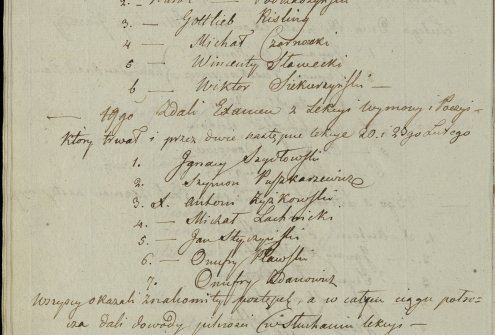 3 — Gottlieb Kisling
4 — Michał Czarnocki
5 — Wincenty Sławecki
6 — Wiktor Siekierzyński —
— 19go Zdali Examen z Lekcyi wymowy i Poezyi
Który trwał i przez dwie następne lekcye 20. i 23go Lutego
1. Ignacy Szydłowski
2. Szymon Puzkarzewicz
3. X. Antoni Zyzkowski
4. — Michał Lachnicki
5. — Jan Styczyński
6. — Onufry Pławski
7. Onufry Adanowicz
Wszyscy okazali znakomity postęp, a w całym ciągu
dali dowody pilności w słuchaniu lekcyi —